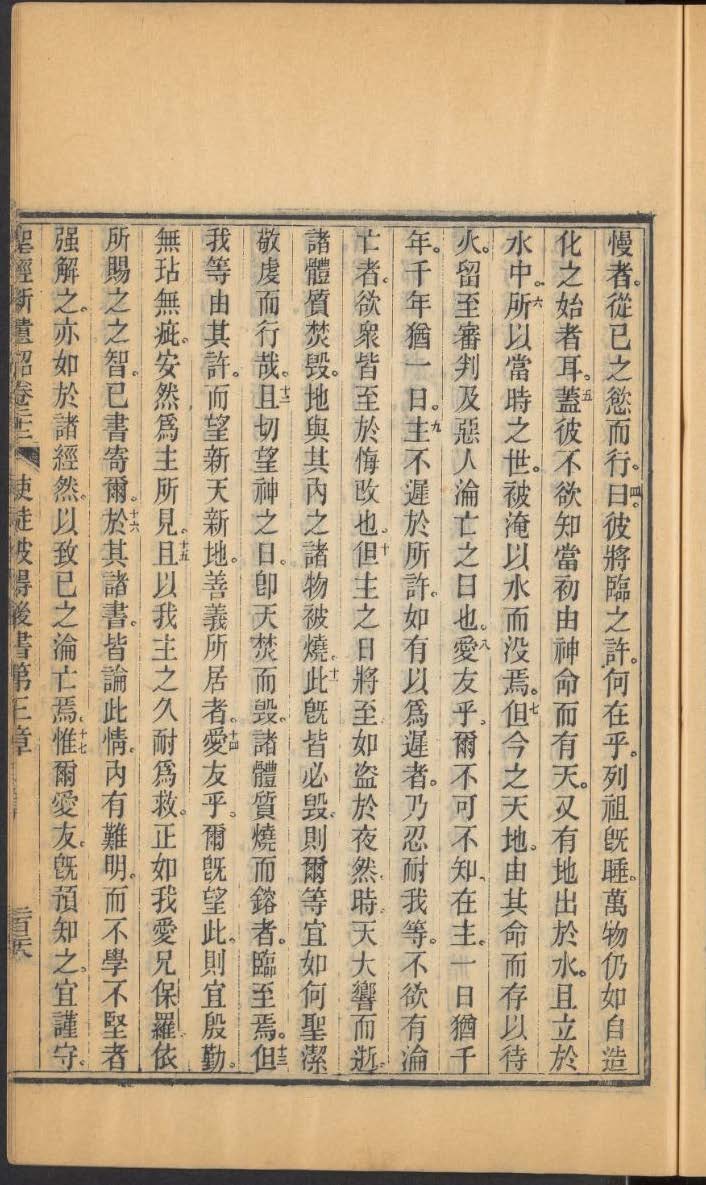 慢者。從己之慾而行。四曰。彼將臨之許。何在乎。列祖旣睡。萬物仍如自造
化之始者耳。五蓋彼不欲知當初由神命而有天。又有地出於水。且立於
水中。六所以當時之世。被淹以水而没焉。七但今之天地。由其命而存以待
火。留至審判及惡人淪亡之日也。八愛友乎。爾不可不知、在主。一日猶千
年。千年猶一日。九主不遲於所許。如有以爲遲者。乃忍耐我等。不欲有淪
亡者。欲衆皆至於悔改也。十但主之日將至如盜於夜然。時天大響而逝。
諸體質焚毁。地與其內之諸物被燒。十一此旣皆必毁。則爾等宜如何聖潔
敬虔而行哉。十二且切望神之日。卽天焚而毁。諸體質燒而鎔者。臨至焉。十三但
我等由其許。而望新天新地。善義所居者。十四愛友乎。爾旣望此。則宜殷勤。
無玷無疵。安然爲主所見。十五且以我主之久耐爲救。正如我愛兄保羅依
所賜之之智。已書寄爾。十六於其諸書。皆論此情。內有難明。而不學不堅者
强解之。亦如於諸經然。以致己之淪亡焉。十七惟爾愛友。旣預知之。宜謹守。
聖經新遺詔卷三 使徒彼得後書第三章